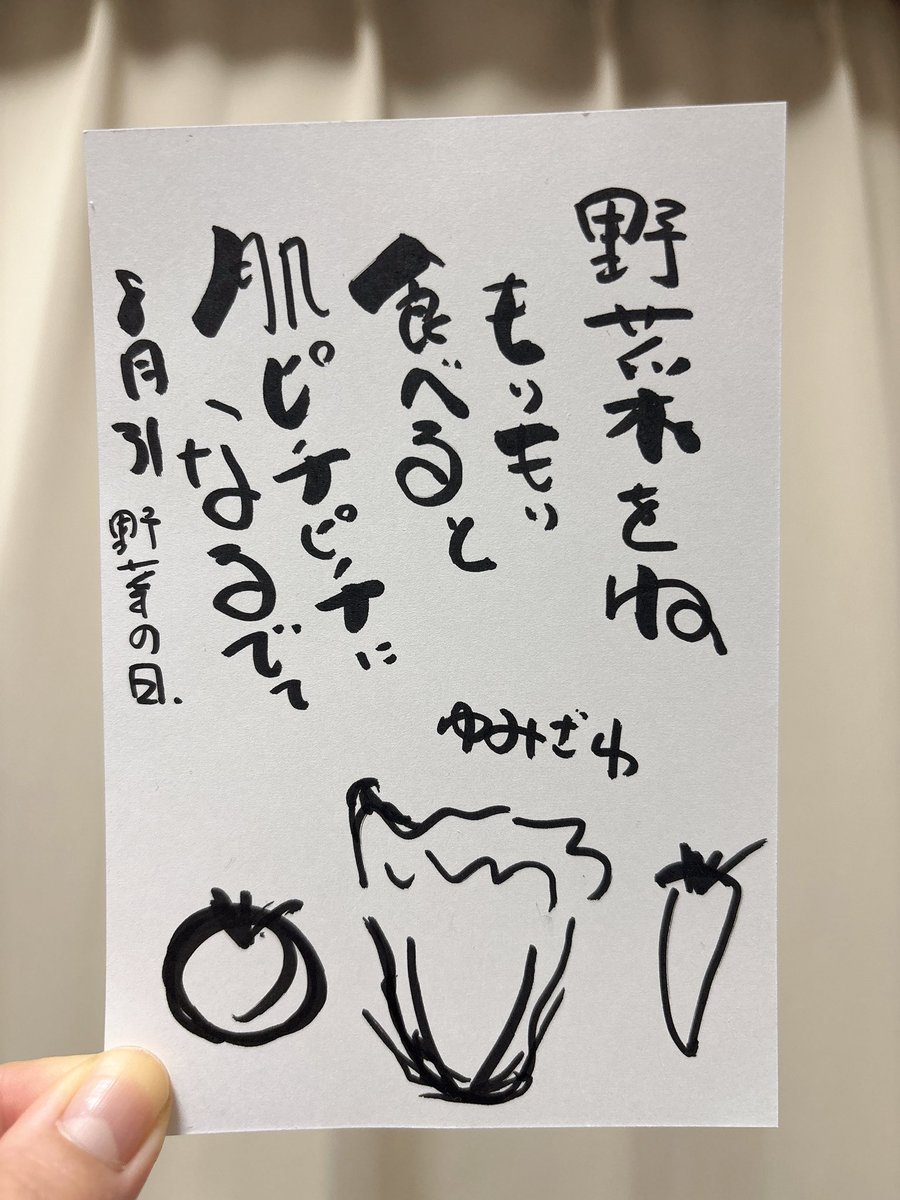 野菜をね
もりもり
食べると
肌ピチピチに
なるでて
8月31 野菜の日.
ゆみざわ